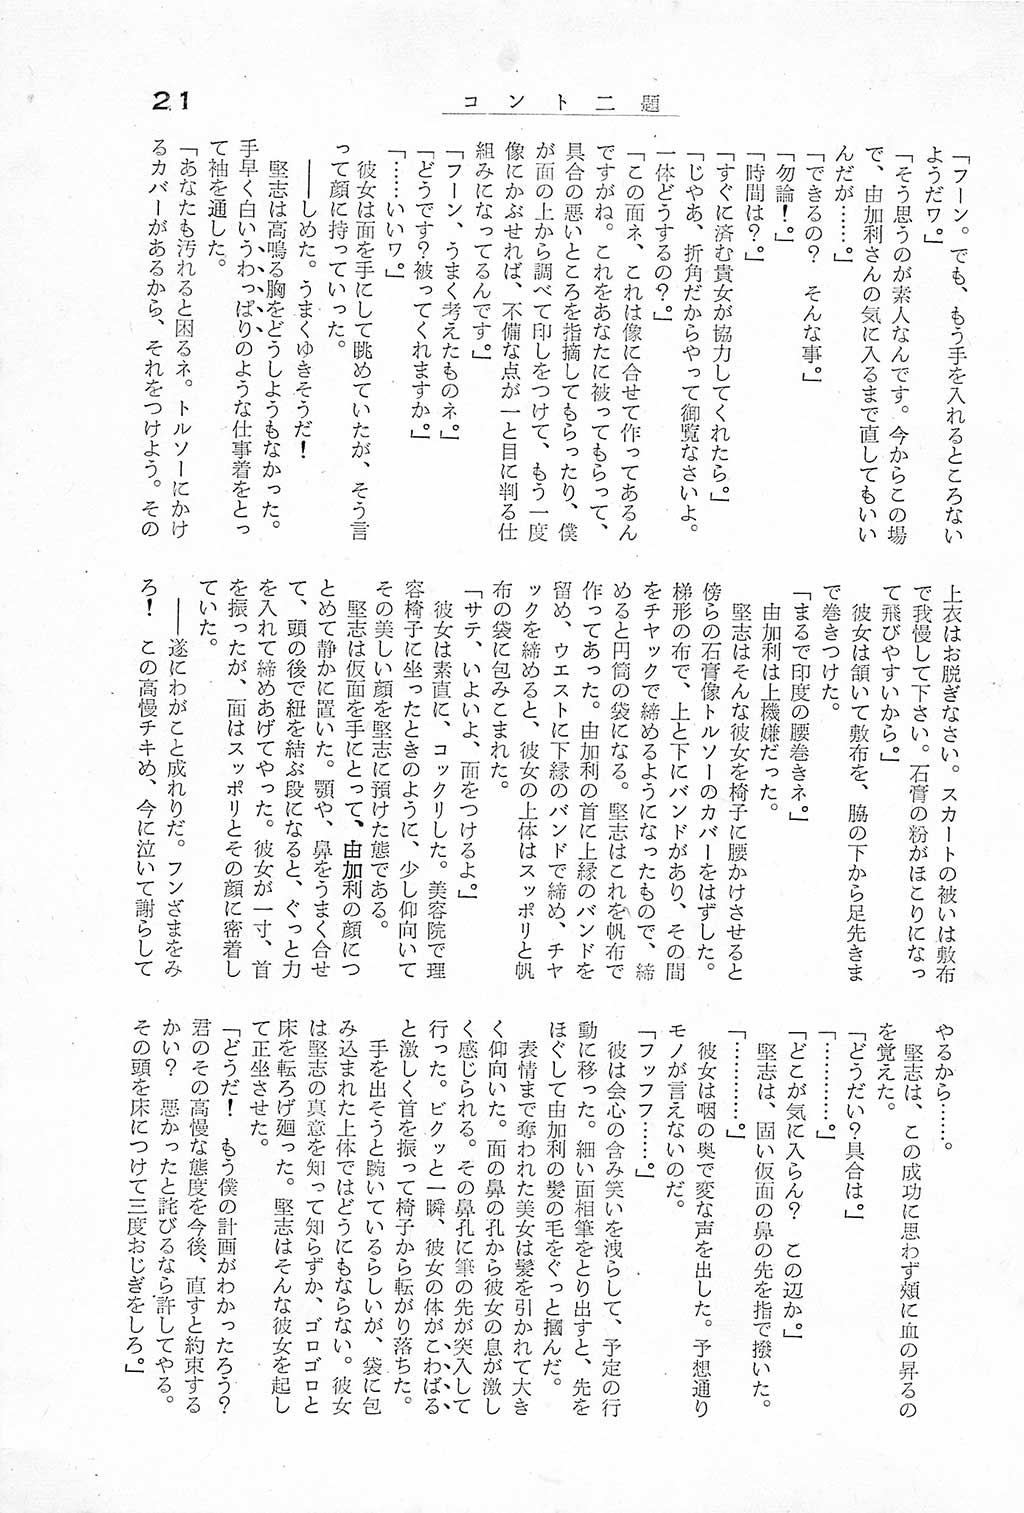 21
コント二題
「フーン。でも、もう手を入れるところない
ようだワ。」
「そう思うのが素人なんです。今からこの場
で、由加利さんの気に入るまで直してもいい
んだが……。」
「できるの？　そんな事。」
「勿論！。」
「時間は？。」
「すぐに済む貴女が協力してくれたら。」
「じゃあ、折角だからやって御覧なさいよ。
一体どうするの？。」
「この面ネ、これは像に合せて作ってあるん
ですがね。これをあなたに被ってもらって、
具合の悪いところを指摘してもらったり、僕
が面の上から調べて印しをつけて、もう一度
像にかぶせれば、不備な点が一と目に判る仕
組みになってるんです。」
「フーン、うまく考えたものネ。」
「どうです？被ってくれますか。」
「……いいワ。」
彼女は面を手にして眺めていたが、そう言
って顔に持っていった。
――しめた。うまくゆきそうだ！
堅志は高鳴る胸をどうしようもなかった。
手早く白いうわっぱりのような仕事着をとっ
て袖を通した。
「あなたも汚れると困るネ。トルソーにかけ
るカバーがあるから、それをつけよう。その
上衣はお脱ぎなさい。スカートの被いは敷布
で我慢して下さい。石膏の粉がほこりになっ
て飛びやすいから。」
彼女は頷いて敷布を、脇の下から足先きま
で巻きつけた。
「まるで印度の腰巻きネ。」
由加利は上機嫌だった。
堅志はそんな彼女を椅子に腰かけさせると
傍らの石膏像トルソーのカバーをはずした。
梯形の布で、上と下にバンドがあり、その間
をチヤックで締めるようになったもので、締
めると円筒の袋になる。堅志はこれを帆布で
作ってあった。由加利の首に上縁のバンドを
留め、ウエストに下縁のバンドで締め、チヤ
ックを締めると、彼女の上体はスッポリと帆
布の袋に包みこまれた。
「サテ、いよいよ、面をつけるよ。」
彼女は素直に、コックリした。美容院で理
容椅子に坐ったときのように、少し仰向いて
その美しい顔を堅志に預けた態である。
堅志は仮面を手にとって、由加利の顔につ
とめて静かに置いた。顎や、鼻をうまく合せ
て、頭の後で紐を結ぶ段になると、ぐっと力
を入れて締めあげてやった。彼女が一寸、首
を振ったが、面はスッポリとその顔に密着し
ていた。
――遂にわがこと成れりだ。フンざまをみ
ろ！　この高慢チキめ、今に泣いて謝らして
やるから……。
堅志は、この成功に思わず頬に血の昇るの
を覚えた。
「どうだい？具合は。」
「…………。」
「どこが気に入らん？　この辺か。」
堅志は、固い仮面の鼻の先を指で撥いた。
「…………。」
彼女は咽の奥で変な声を出した。予想通り
モノが言えないのだ。
「フッフフ……。」
彼は会心の含み笑いを洩らして、予定の行
動に移った。細い面相筆をとり出すと、先を
ほぐして由加利の髪の毛をぐっと摑んだ。
表情まで奪われた美女は髪を引かれて大き
く仰向いた。面の鼻の孔から彼女の息が激し
く感じられる。その鼻孔に筆の先が突入して
行った。ビクッと一瞬、彼女の体がこわばる
と激しく首を振って椅子から転がり落ちた。
手を出そうと踠いているらしいが、袋に包
み込まれた上体ではどうにもならない。彼女
は堅志の真意を知って知らずか、ゴロゴロと
床を転ろげ廻った。堅志はそんな彼女を起し
て正坐させた。
「どうだ！　もう僕の計画がわかったろう？
君のその高慢な態度を今後、直すと約束する
かい？　悪かったと詫びるなら許してやる。
その頭を床につけて三度おじぎをしろ。」